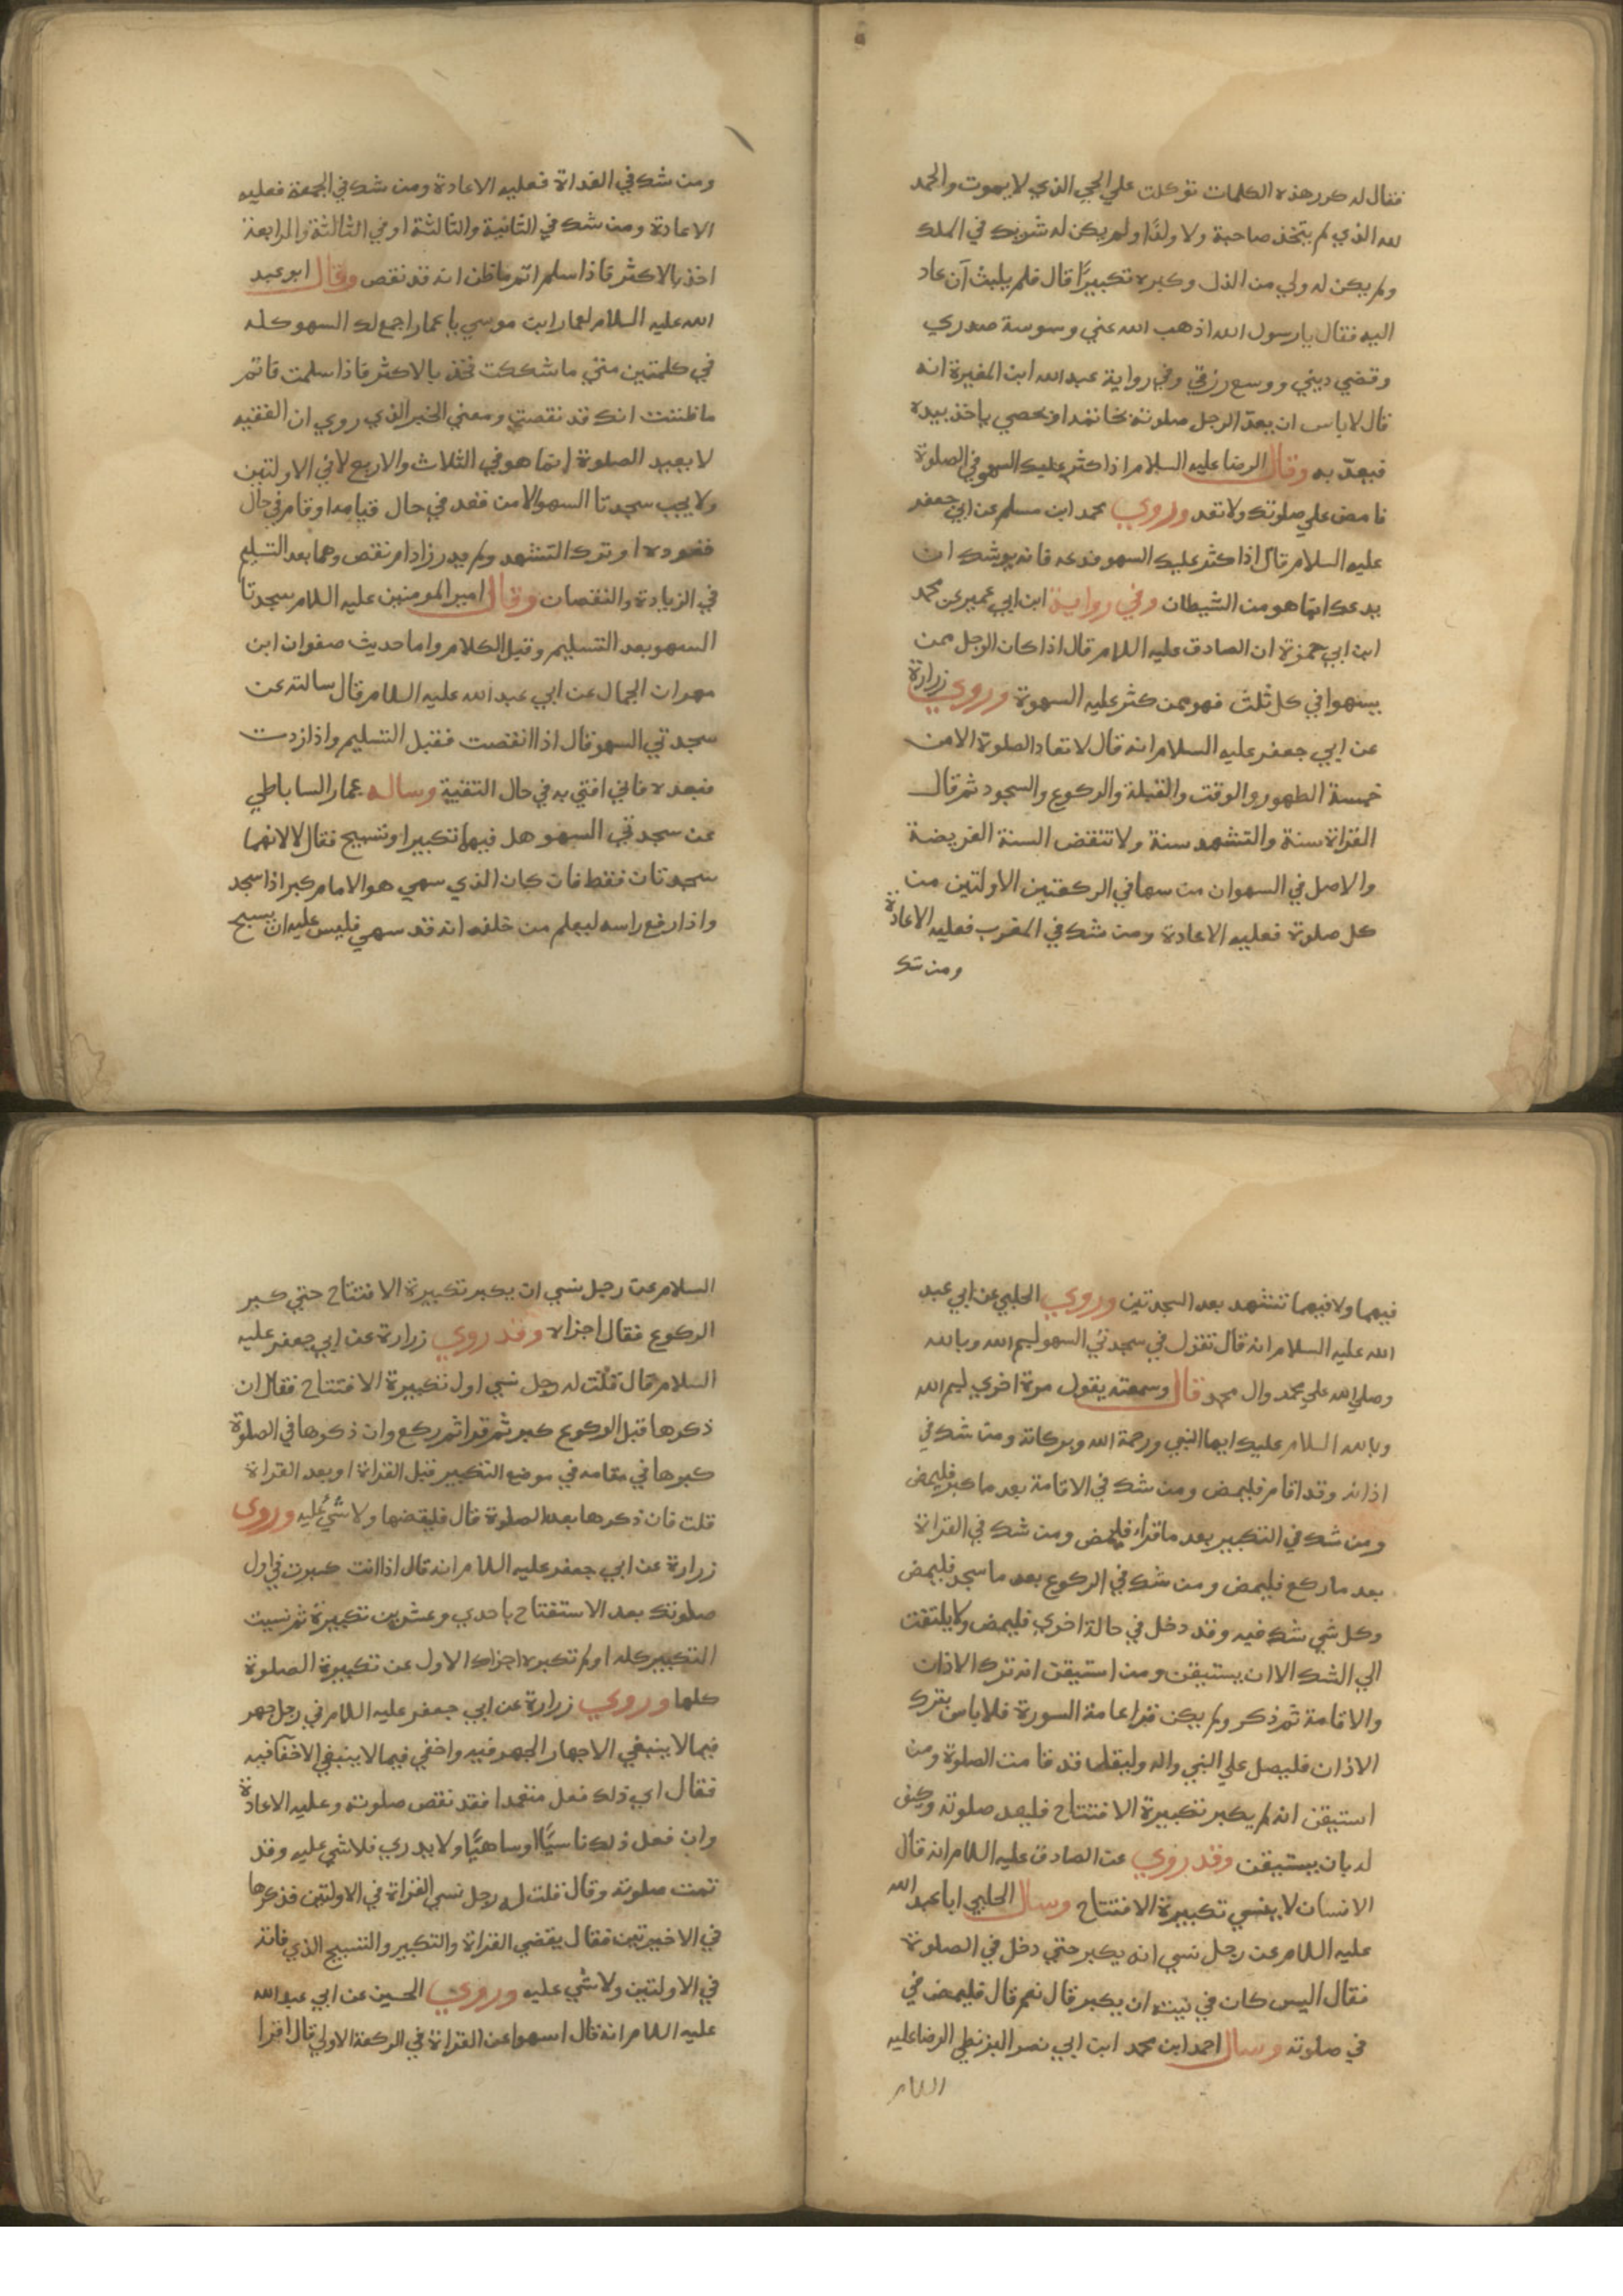 فقال له كرر هذه الكلمات توكلت علي الحي الذي لا يموت والحمد
لله الذي لم يتخذ صاحبة ولا ولدًا ولم يكن له شريك في الملك
ولم يكن له ولي من الذل وكبره تكبيرًا قال فلم يلبث آن عاد
اليه فقال يا رسول الله اذهب الله عني وسوسة صدري
وقضي ديني ووسع رزقي وفي رواية عبد الله ابن المغيرة انه
قال لا باس ان يعدّ الرجل صلوته بخاتمه او بحصي ياخذ بيده
فيعدّ به وقال الرضا عليه السلام اذا كثر عليك السهو في الصلوة
فامض علي صلوتك ولا تعد وروي محمد ابن مسلم عن ابي جعفر
عليه السلام قال اذا كثر عليك السهو فدعه فانه يوشك ان
يدعك انما هو من الشيطان وفي رواية ابن ابي عمير عن محمد
ابن ابي حمزة ان الصادق عليه السلام قال اذا كان الرجل ممن
يسهوا في كل ثلث فهو ممن كثر عليه السهوة وروي زرارة
عن ابي جعفر عليه السلام انه قال لا تعاد الصلوة الا من
خمسة الطهور والوقت والقبلة والركوع والسجود ثم قال
القراة سنة والتشهد سنة ولا تنقض السنة الفريضة
والاصل في السهو ان من سها في الركعتين الاولتين من
كل صلوة فعليه الاعادة ومن شك في المغرب فعليه الاعادة
ومن شك
ومن شك في الغداة فعليه الاعادة ومن شك في الجمعة فعليه
الاعادة ومن شك في الثانية والثالثة او في الثالثة والرابعة
اخذ بالاكثر فاذا سلم اتم ما ظن انه قد نقص وقال ابو عبد
الله عليه السلام لعمار ابن موسي يا عمار اجمع لك السهو كله
في كلمتين متي ما شككت فخذ بالاكثر فاذا سلمت فاتم
ما ظننت انك قد نقصت ومعني الخبر الذي روي ان الفقيه
لا يعيد الصلوة انما هو في الثلاث والاربع لا في الاولتين
ولا يجب سجدتا السهو الا من قعد في حال قيامه او قام في حال
قعوده او ترك التشهد ولم يدر زاد ام نقص وهما بعد التسليم
في الزيادة والنقصان وقال امير المومنين عليه السلام سجدتا
السهو بعد التسليم وقبل الكلام واما حديث صفوان ابن
مهران الجمال عن ابي عبد الله عليه السلام قال سالته عن
سجدتي السهو قال اذا انقصت فقبل التسليم واذا زدت
فبعده فاني افتي به في حال التقية وساله عمار الساباطي
عن سجدتي السهو هل فيهما تكبير او تسبيح فقال لا لانهما
سجدتان فقط فان كان الذي سهي هو الامام كبر اذا سجد
واذا رفع راسه ليعلم من خلفه انه قد سهي فليس عليه ان يسبح
فيهما ولا فيهما تشهد بعد السجدتين وروي الحلبي عن ابي عبد
الله عليه السلام انه قال تقول في سجدتي السهو بسم الله وبالله
وصلي الله علي محمد وال محمد قال وسمعته يقول مرة اخري بسم الله
وبالله السلام عليك ايها النبي ورحمة الله وبركاته ومن شك في
اذانه وقد اقام فليمض ومن شك في الاقامة بعد ما كبر فليمض
ومن شك في التكبير بعد ما قراء فليمض ومن شك في القراة
بعد ما ركع فليمض ومن شك في الركوع بعد ما سجد فليمض
وكل شي شك فيه وقد دخل في حالة اخري فليمض ولا يلتفت
الي الشك الا ان يستيقن ومن استيقن انه ترك الاذان
والاقامة ثم ذكر ولم يكن قرا عامة السورة فلا باس بترك
الاذان فليصل علي النبي واله وليقل قد قامت الصلوة ومن
استيقن انه لم يكبر تكبيرة الافتتاح فليعد صلوته وكيف
له بان يستيقن وقد روي عن الصادق عليه السلام انه قال
الانسان لا ينسي تكبيرة الافتتاح وسال الحلبي ابا عبد الله
عليه السلام عن رجل نسي انه يكبر حتي دخل في الصلوة
فقال اليس كان في نيته ان يكبر قال نعم قال فليمض في
في صلوته وسال احمد ابن محمد ابن ابي نصر البزنطي الرضا عليه
السلام
السلام عن رجل نسي ان يكبر تكبيرة الافتتاح حتي كبر
الركوع فقال اجزاه وقد روي زرارة عن ابي جعفر عليه
السلام قال قلت له رجل نسي اول تكبيرة الافتتاح فقال ان
ذكرها قبل الركوع كبر ثم قرا ثم ركع وان ذكرها في الصلوة
كبرها في مقامه في موضع التكبير قبل القراة او بعد القراة
قلت فان ذكرها بعد الصلوة قال فليقضها ولا شي عليه وروي
زرارة عن ابي جعفر عليه السلام انه قال اذا انت كبرت في اول
صلوتك بعد الاستفتاح باحدي وعشرين تكبيرة ثم نسيت
التكبير كله او لم تكبره اجزاك الاول عن تكبيرة الصلوة
كلها وروي زرارة عن ابي جعفر عليه السلام في رجل جهر
فيما لا ينبغي الاجهار الجهر فيه واخفي فيما لا ينبغي الاخفا فيه
فقال اي ذلك فعل متعمدا فقد نقص صلوته وعليه الاعادة
وان فعل ذلك ناسيًا او ساهيًا ولا يدري فلا شي عليه وقد
تمت صلوته وقال قلت له رجل نسي القراة في الاولتين فذكرها
في الاخيرتين فقال يقضي القراة والتكبير والتسبيح الذي فاته
في الاولتين ولا شي عليه وروي الحسين عن ابي عبد الله
عليه السلام انه قال اسهوا عن القراة في الركعة الاولي قال اقرا